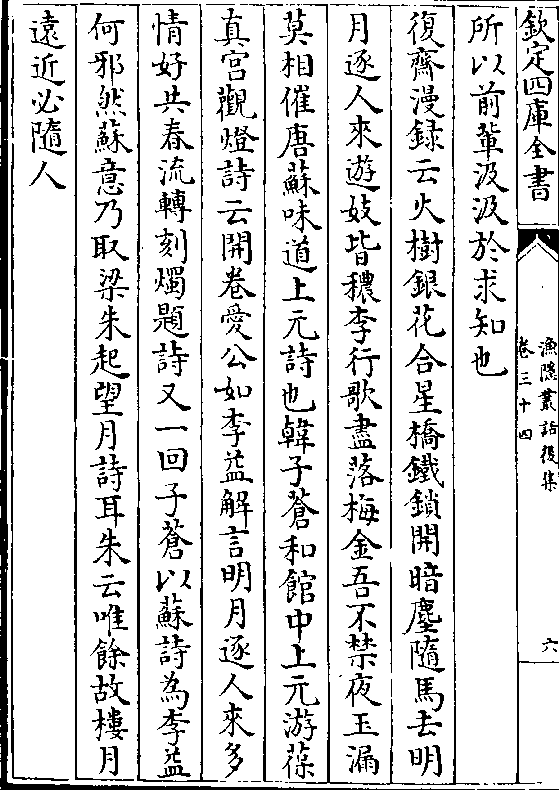 欽定四庫全書
漁隱叢話後集
卷三十四
六
所以前輩汲汲於求知也
復齋漫録云火樹銀花合星橋鐵鎖開暗塵隨馬去明
月逐人來遊妓皆穠李行歌盡落梅金吾不禁夜玉漏
莫相催唐蘇味道上元詩也韓子蒼和館中上元游葆
真宫觀燈詩云開卷愛公如李益解言明月逐人來多
情好共春流轉刻燭題詩又一回子蒼以蘇詩為李益
何邪然蘇意乃取梁朱起望月詩耳朱云唯餘故樓月
遠近必隨人